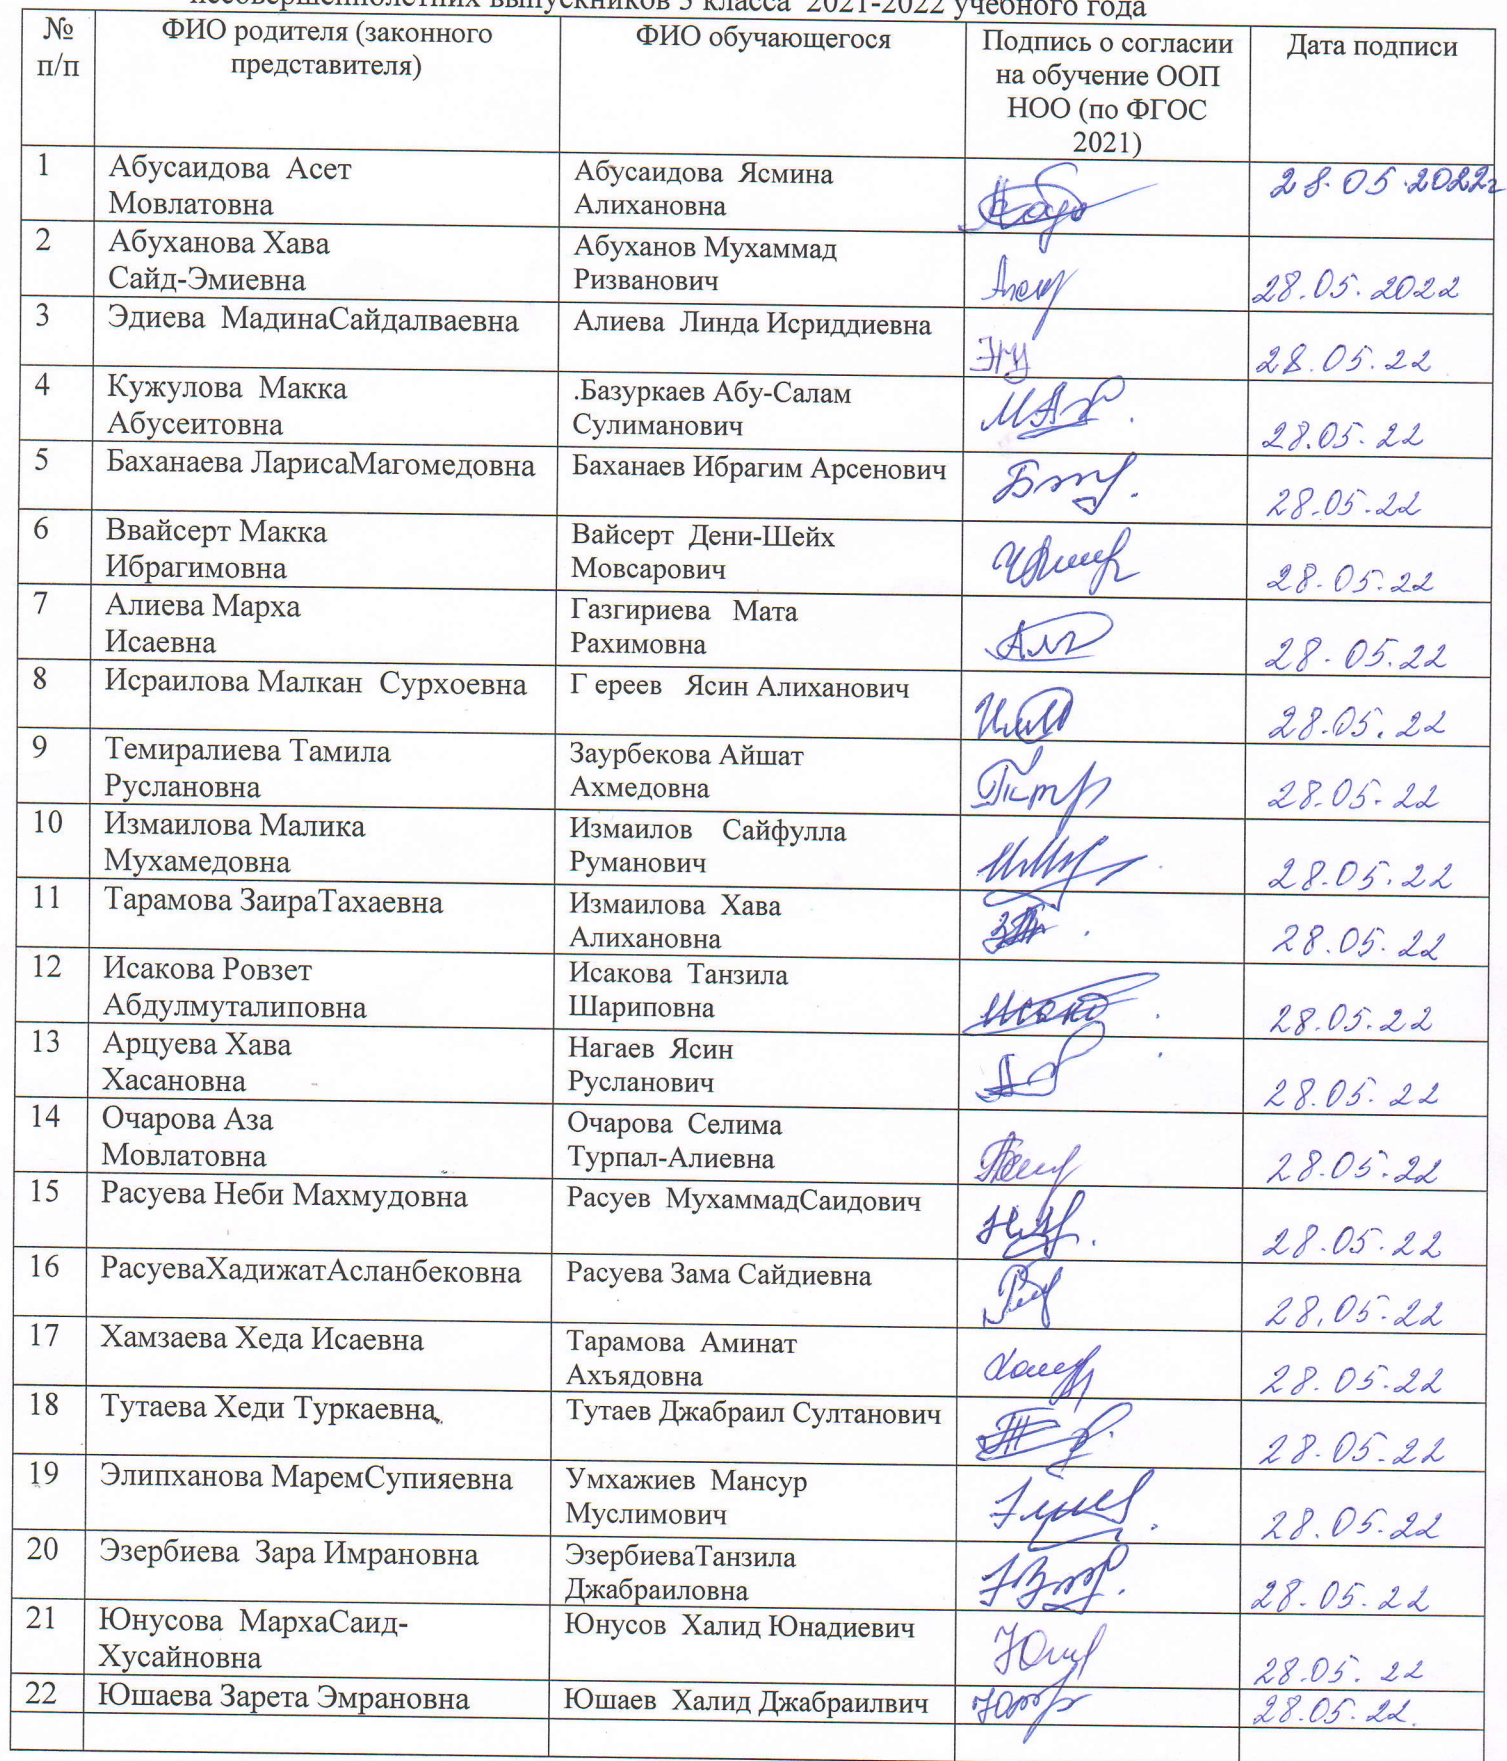 несовершеннолетних выпускников 3 класса 2021-2022 учебного года
№ п/п ФИО родителя (законного представителя) ФИО обучающегося Подпись о согласии на обучение ООП НОО (по ФГОС 2021) Дата подписи
1 Абусаидова Асет Мовлатовна Абусаидова Ясмина Алихановна 28.05.2022г
2 Абуханова Хава Сайд-Эмиевна Абуханов Мухаммад Ризванович 28.05.2022
3 Эдиева МадинаСайдалваевна Алиева Линда Исриддиевна 28.05.22
4 Кужулова Макка Абусеитовна .Базуркаев Абу-Салам Сулиманович 28.05.22
5 Баханаева ЛарисаМагомедовна Баханаев Ибрагим Арсенович 28.05.22
6 Ввайсерт Макка Ибрагимовна Вайсерт Дени-Шейх Мовсарович 28.05.22
7 Алиева Марха Исаевна Газгириева Мата Рахимовна 28.05.22
8 Исраилова Малкан Сурхоевна Г ереев Ясин Алиханович 28.05.22
9 Темиралиева Тамила Руслановна Заурбекова Айшат Ахмедовна 28.05.22
10 Измаилова Малика Мухамедовна Измаилов Сайфулла Руманович 28.05.22
11 Тарамова ЗаираТахаевна Измаилова Хава Алихановна 28.05.22
12 Исакова Ровзет Абдулмуталиповна Исакова Танзила Шариповна 28.05.22
13 Арцуева Хава Хасановна Нагаев Ясин Русланович 28.05.22
14 Очарова Аза Мовлатовна Очарова Селима Турпал-Алиевна 28.05.22
15 Расуева Неби Махмудовна Расуев МухаммадСаидович 28.05.22
16 РасуеваХадижатАсланбековна Расуева Зама Сайдиевна 28.05.22
17 Хамзаева Хеда Исаевна Тарамова Аминат Ахъядовна 28.05.22
18 Тутаева Хеди Туркаевна Тутаев Джабраил Султанович 28.05.22
19 Элипханова МаремСупияевна Умхажиев Мансур Муслимович 28.05.22
20 Эзербиева Зара Имрановна ЭзербиеваТанзила Джабраиловна 28.05.22
21 Юнусова МархаСаид-Хусайновна Юнусов Халид Юнадиевич 28.05.22
22 Юшаева Зарета Эмрановна Юшаев Халид Джабраилвич 28.05.22.